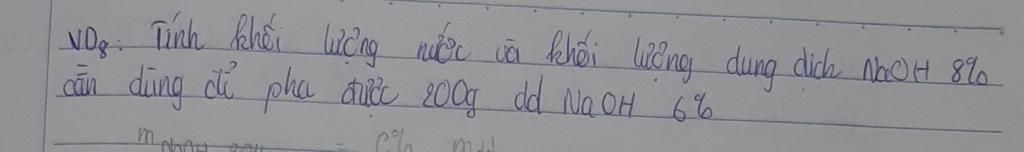 VD8: Tính khối lượng nước và khối lượng dung dịch NaOH 8%
cần dùng để pha được 200g dd NaOH 6%